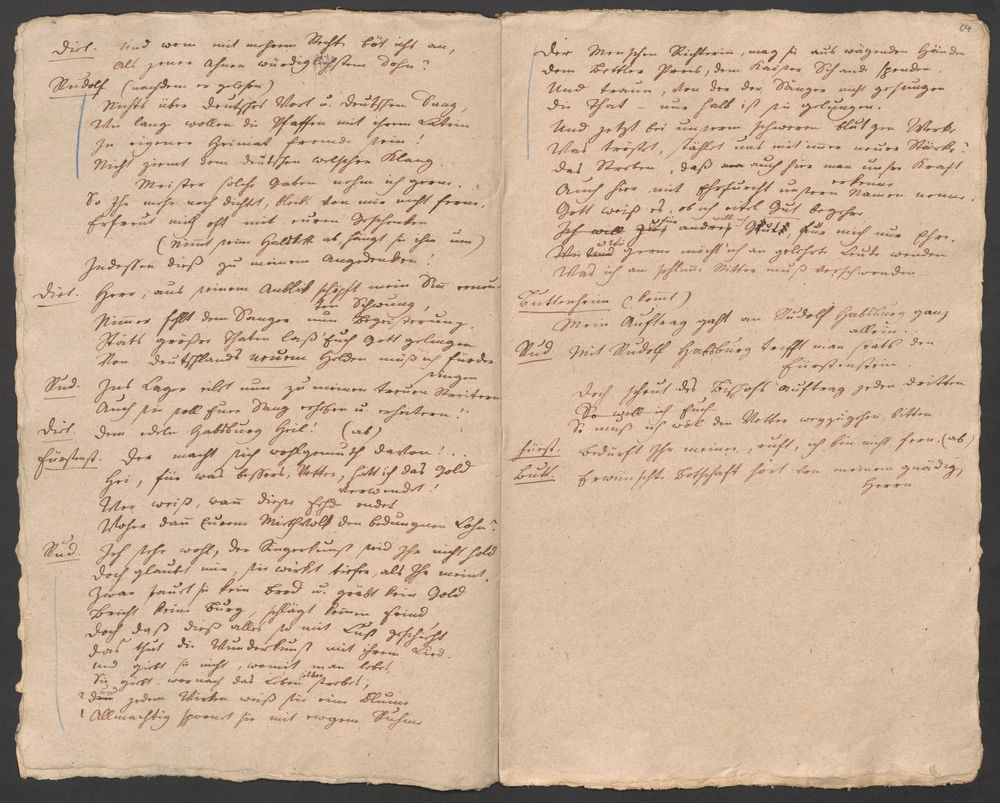 Diet. Und wem mit mehrem Rechte böt ich an,
Als jener Ahnen würdiglichstem Sohn?
Rudolf (nachdem er gelesen)
Nichts über deutsches Wort u. deutschen Sang,
Wie lang wollen die Pfaffen mit ihrem Latein
In eigener Heimat fremde sein!
Nicht ziemt dem deutschen welscher Klang
Meister solche Gaben nehm ich gerne.
So Ihr mehr noch dichtet, bleibt von mir nicht ferne,
Erfreut mich oft mit euren Geschenken
(Nimt seine Halskette ab hängt sie ihm um)
Indessen dieß zu meinem Angedenken!
Diet. Herr, aus seinem Anblick schöpft mein Sinn
den Schwung,
Nimmer fehlt dem Sanger nun Begeisterung.
Stäts größre Thaten laß Euch Gott gelingen
Von Deutschlands neuem Helden muß ich fürder
singen
Rud. Ins Lager eilt nun zu meinen treuen Streitern
Auch sie soll Euer Sang erheben u. erheitern!
Diet. Dem edeln Habsburg Heil! (ab)
Fürstenst. Der macht sich wohlgemuth davon! . .
Hei, für was bessers, Vetter, hätt ich das Gold
verwendet!
Wer weiß, wann diese Fehde endet
Woher dann Eurem Miethvolk den bedungnen Lohn?
Rud. Ich sehe wohl, der Singerkunst seid Ihr nicht hold
Doch glaubt mir, sie wirkt tiefer, als Ihr meint.
Zwar schafft sie kein Brod u. gräbt kein Gold
Bricht keine Burg, schlägt keinen Feind
Doch daß dieß alles so mit Lust geschieht
Das thut die Wunderkunst mit ihrem Lied.
Und giebt sie nicht, womit man lebet,
Sie giebt, wornach das Leben selber strebet;
? Denn jedem Wirken weiß sie eine Blume
! Allmächtig spornt sie mit ewgem Ruhme
69
Der Menschen Richterin, mag sie aus wägenden Händen
Dem Bettler Preis, dem Kaiser Schande spenden.
Und traun, von der der Sänger nicht gesungen
Die That – nur halb ist sie gelungen.
Und jetzt bei unserem schweren blutgen Werke
Was tröstet, stählet uns mit immer neuer Stärke?
Das Streben, daß auch hier man unsre Kraft
erkenne
Auch hier mit Ehrfurcht unseren Namen nenne.
Gott weiß es, ob ich eitel Gut begehre
Ich will für andre Gut, für mich nur Ehre.
Wie gerne möcht ich an gelehrte Leute wenden
Was ich an schlimme Ritter muß verschwenden
Buttenheim (kömt)
Mein Auftrag geht an Rudolf Habsburg ganz
allein.
Rud. Mit Rudolf Habsburg trifft man stäts den
Fürstenstein.
Doch scheut des Bischofs Auftrag jeden dritten
So will ich Euch
So muß ich wol den Vetter wegzugehen bitten
Fürst. Bedürft Ihr meiner, ruft, ich bin nicht fern. (ab)
Butt. Erwünschte Botschaft hört von meinem gnädig
Herrn